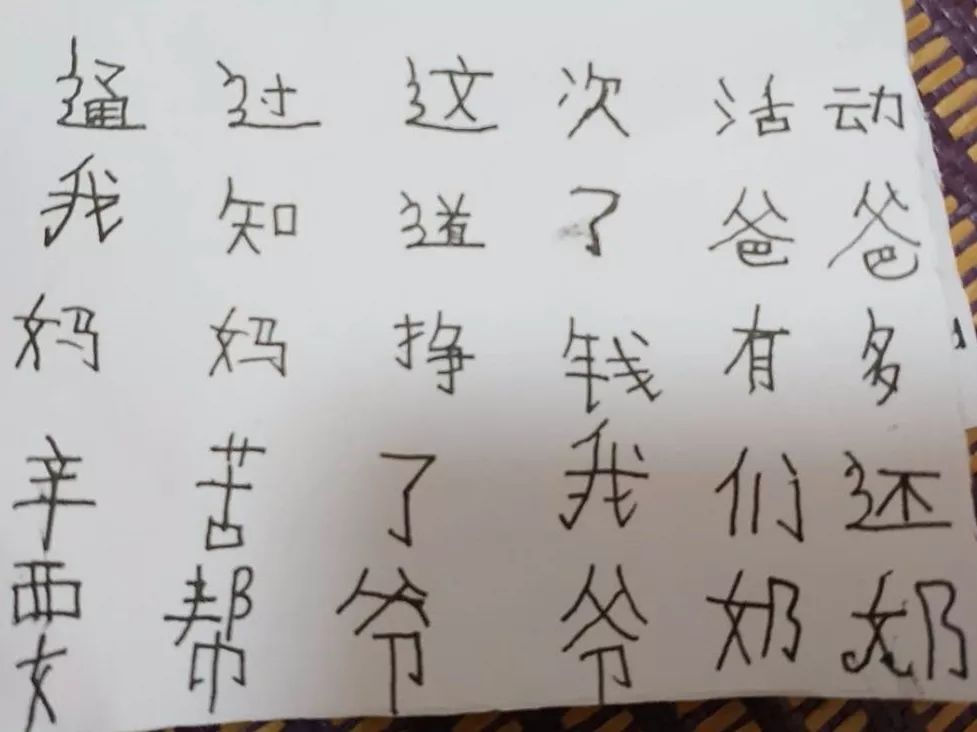 通过这次活动
我知道了爸爸
妈妈挣钱有多
辛苦了我们还
要帮爷爷奶奶